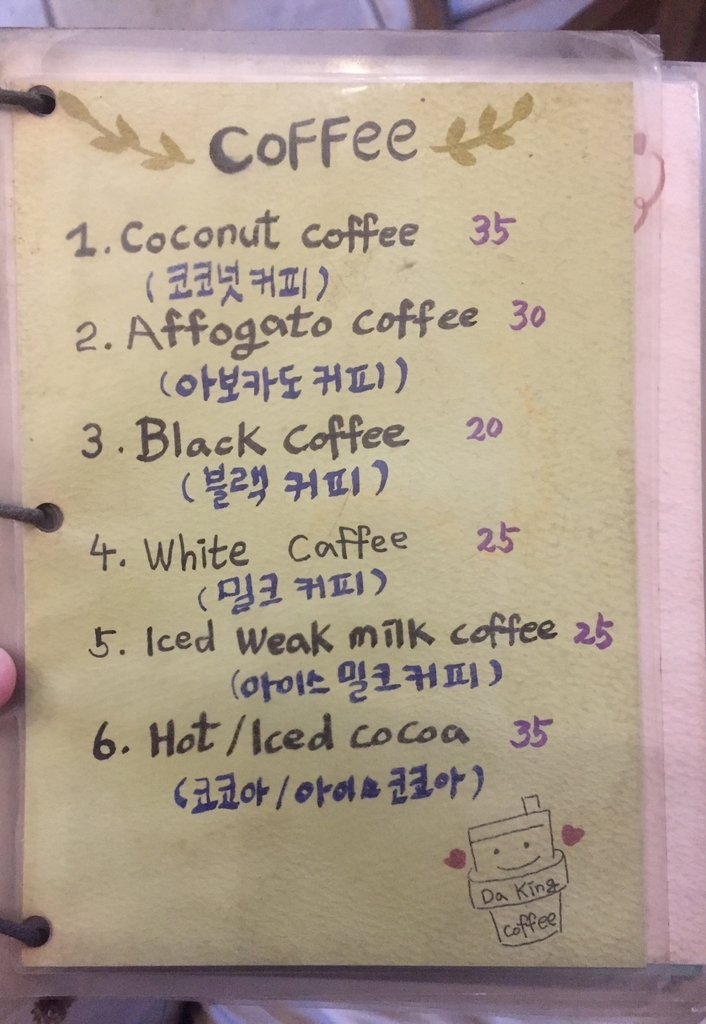 COFFee
1. Coconut coffee 35
(코코넛 커피)
2. Affogato coffee 30
(아보카도 커피)
3. Black coffee 20
(블랙 커피)
4. White Caffee 25
(밀크 커피)
5. Iced weak milk coffee 25
(아이스 밀크커피)
6. Hot/Iced cocoa 35
(코코아/아이스 코코아)
Da King
coffee